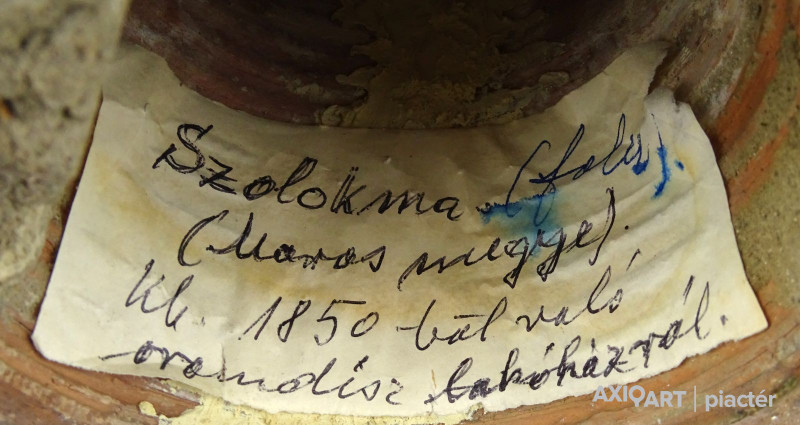 Szolokma (falu).
(Maros megye).
Kb. 1850-ből való
oromdísz lakóházról.
AXIOART | piactér